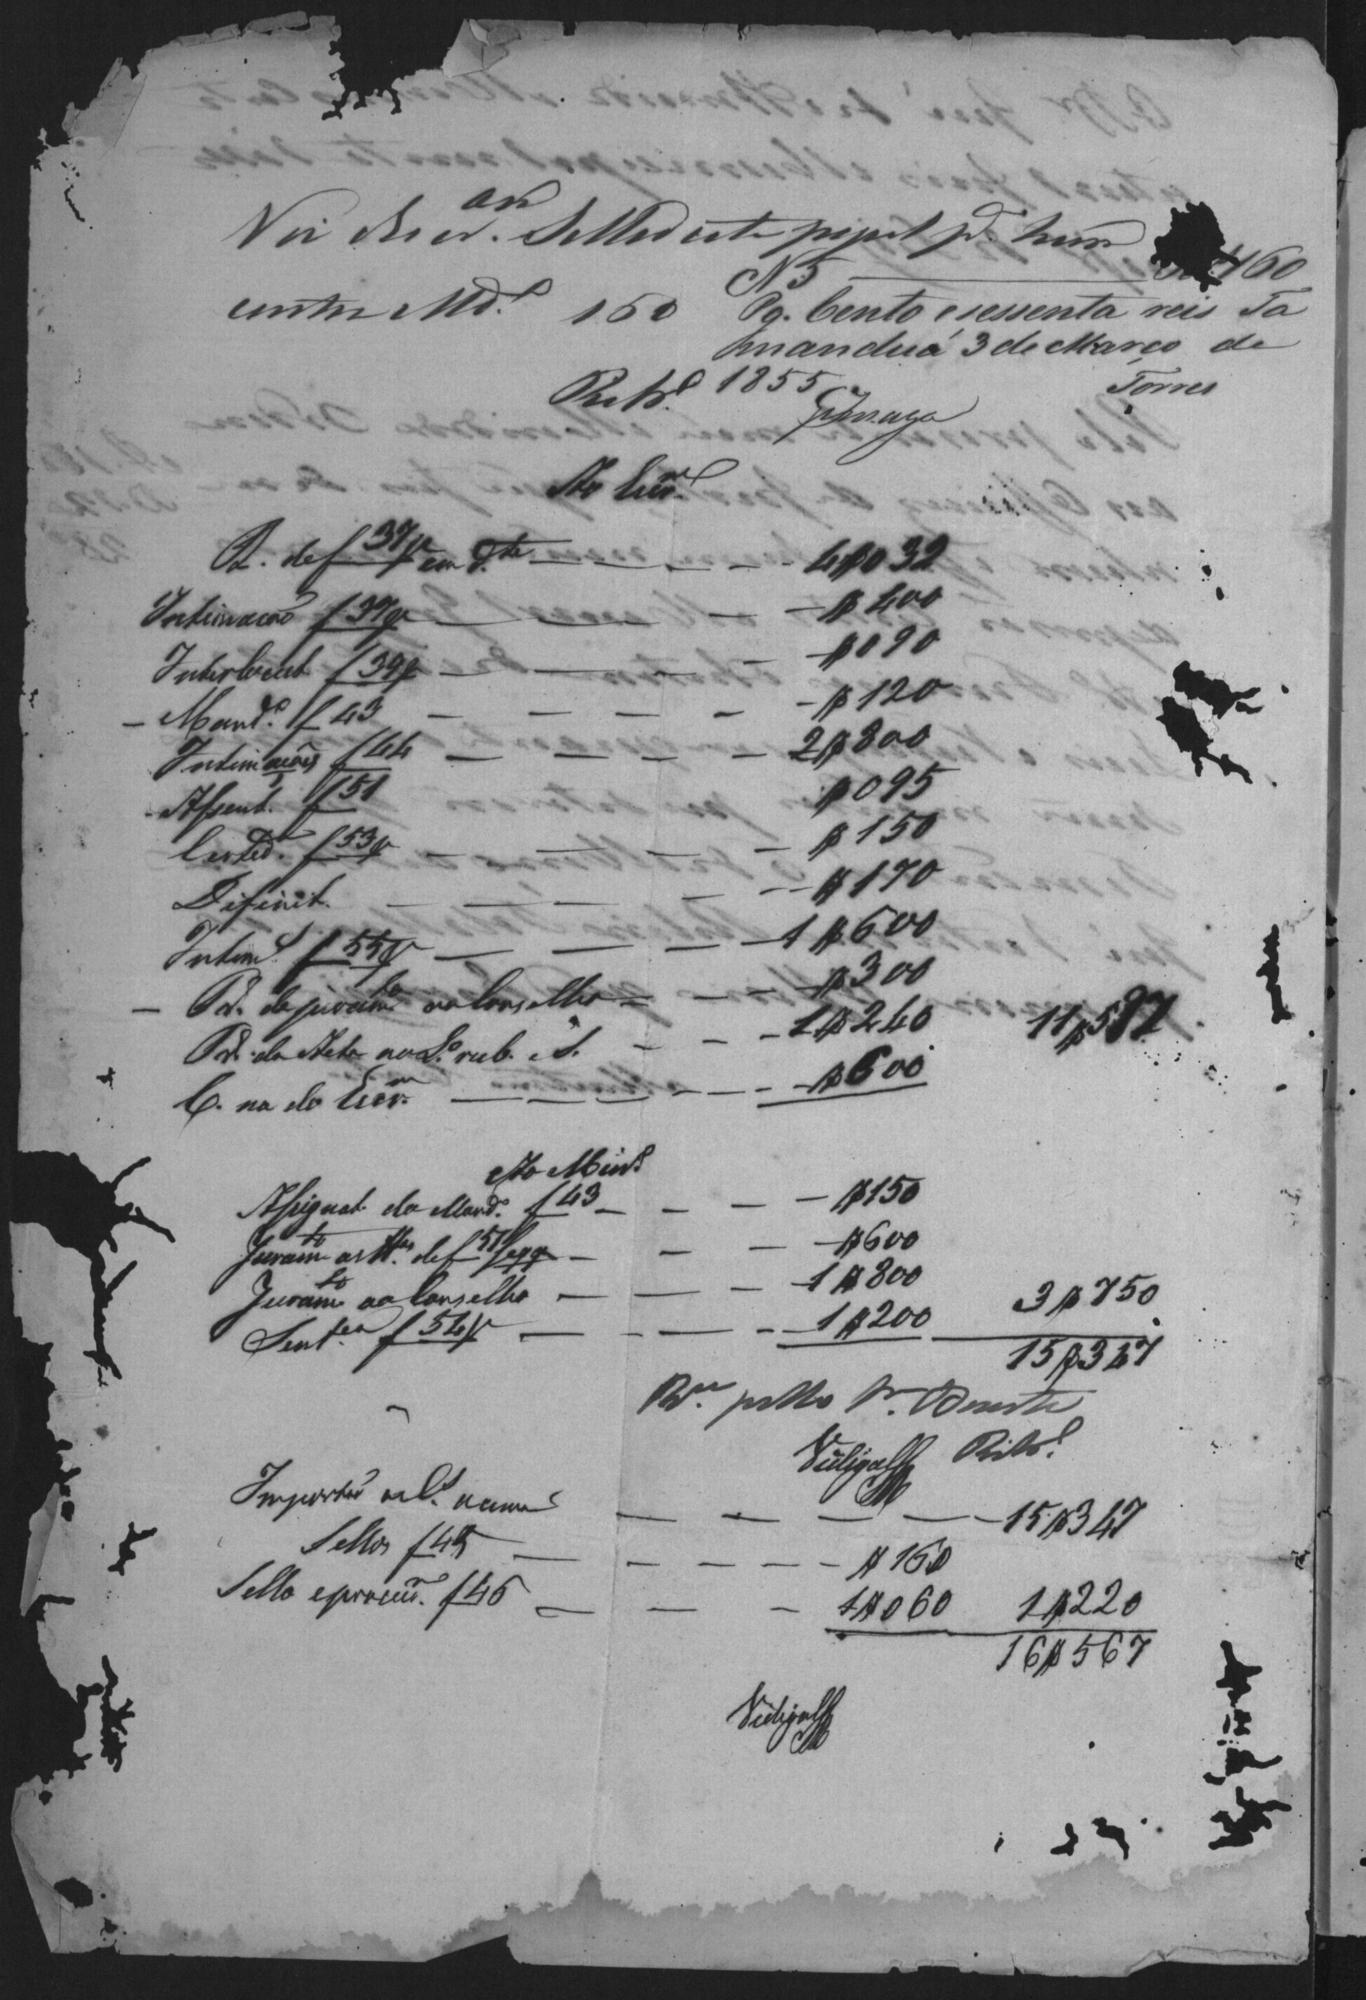 Vai ao Escr.am Sellar este papel p.r hum
N 5 160
contra Md.o 160 Pg. Cento e sessenta reis Ta
manduá 3 de Março de
Ribr.o 1855 Torres
Gonzaga
Ao Escr.am
R. de f 37 v em d.te 4$032
Intimação f 37 v $400
Interlocut. f 39 v $090
Mand.o f 43 $120
Intimações f 44 2$800
Assent. f 51 $095
Certid. f 53 v $150
Difinit. $170
Intim. f 55 v 1$600
R. do juram.to ao Conselho $300
R. da Acta no L.o rub. e S. 1$240 11$597
C. na do Escr.am $600
Ao Min.o
Assignat. do Mand.o f 43 $150
Juram.to as tt.as de f 51 $600
Juram.to ao Conselho 1$800
Sent.ça f 54 v 1$200 3$750
15$347
pello
Vidigal Ribr.o
Importão as C.tas acima 15$347
Sellos f 45 $160
Sello e procur. f 46 1$060 1$220
16$567
Vidigal